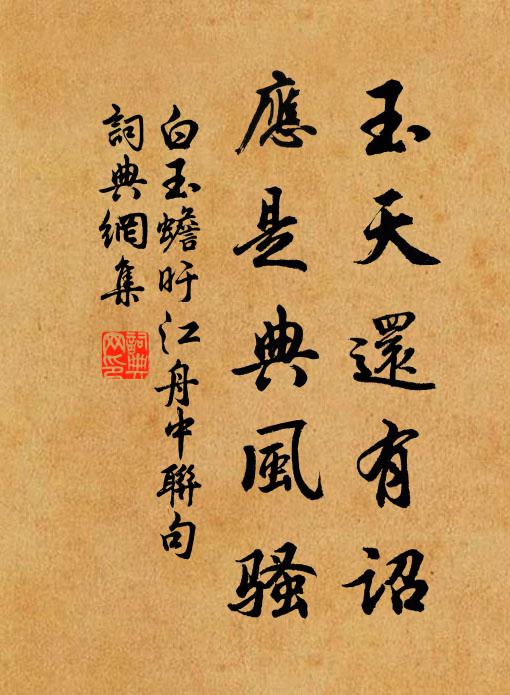 玉天還有詔
應是典風騷
白玉蟾旰江舟中聯句
詞典網集
詞典网印